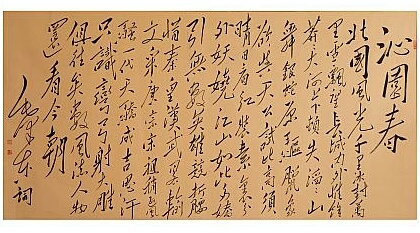 沁園春
北國風光千里冰封萬
里雪飄望長城内外惟餘
莽莽大河上下頓失滔滔山
舞銀蛇原驅臘象
欲與天公試比高須
晴日看紅裝素裹分
外妖嬈江山如此多嬌
引無數英雄競折腰
惜秦皇漢武略輸
文采唐宗宋祖稍遜風
騷一代天驕成吉思汗
只識彎弓射大雕
俱往矣數風流人物
還看今朝
毛澤東詞